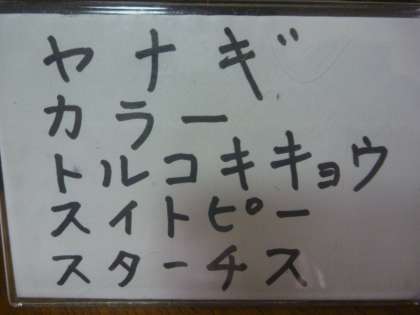 ヤナギ
カラー
トルコキキョウ
スイトピー
スターチス